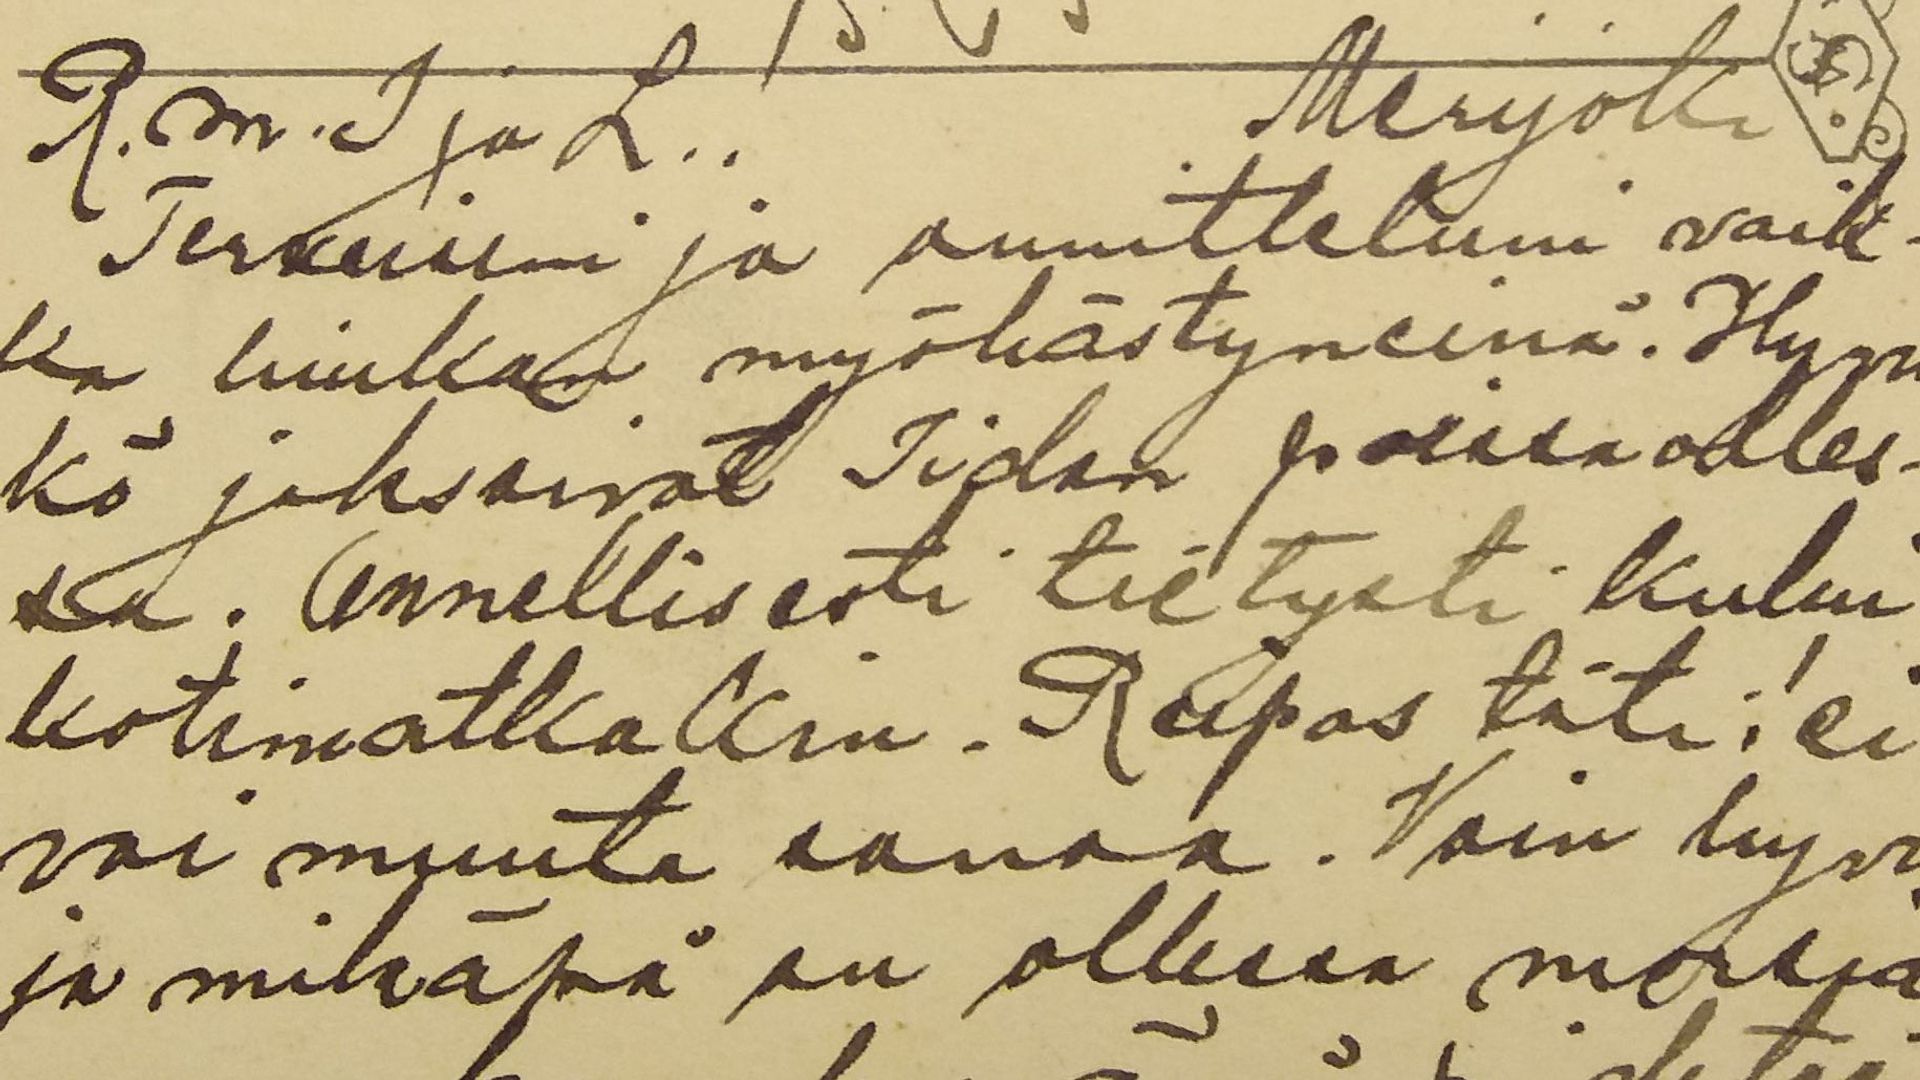 R. m. I ja L.. Meryoki
Terveiseni ja onnitteluni vaik-
ka hiukan myöhästyneinä. Hyvin
kö jaksoivat Iidan poissa olles-
sa. Onnellisesti tietysti kului
kotimatkakin. Reipas täti! ei
voi muuta sanoa. Voin hyvin
ja mikäpä on ollessa